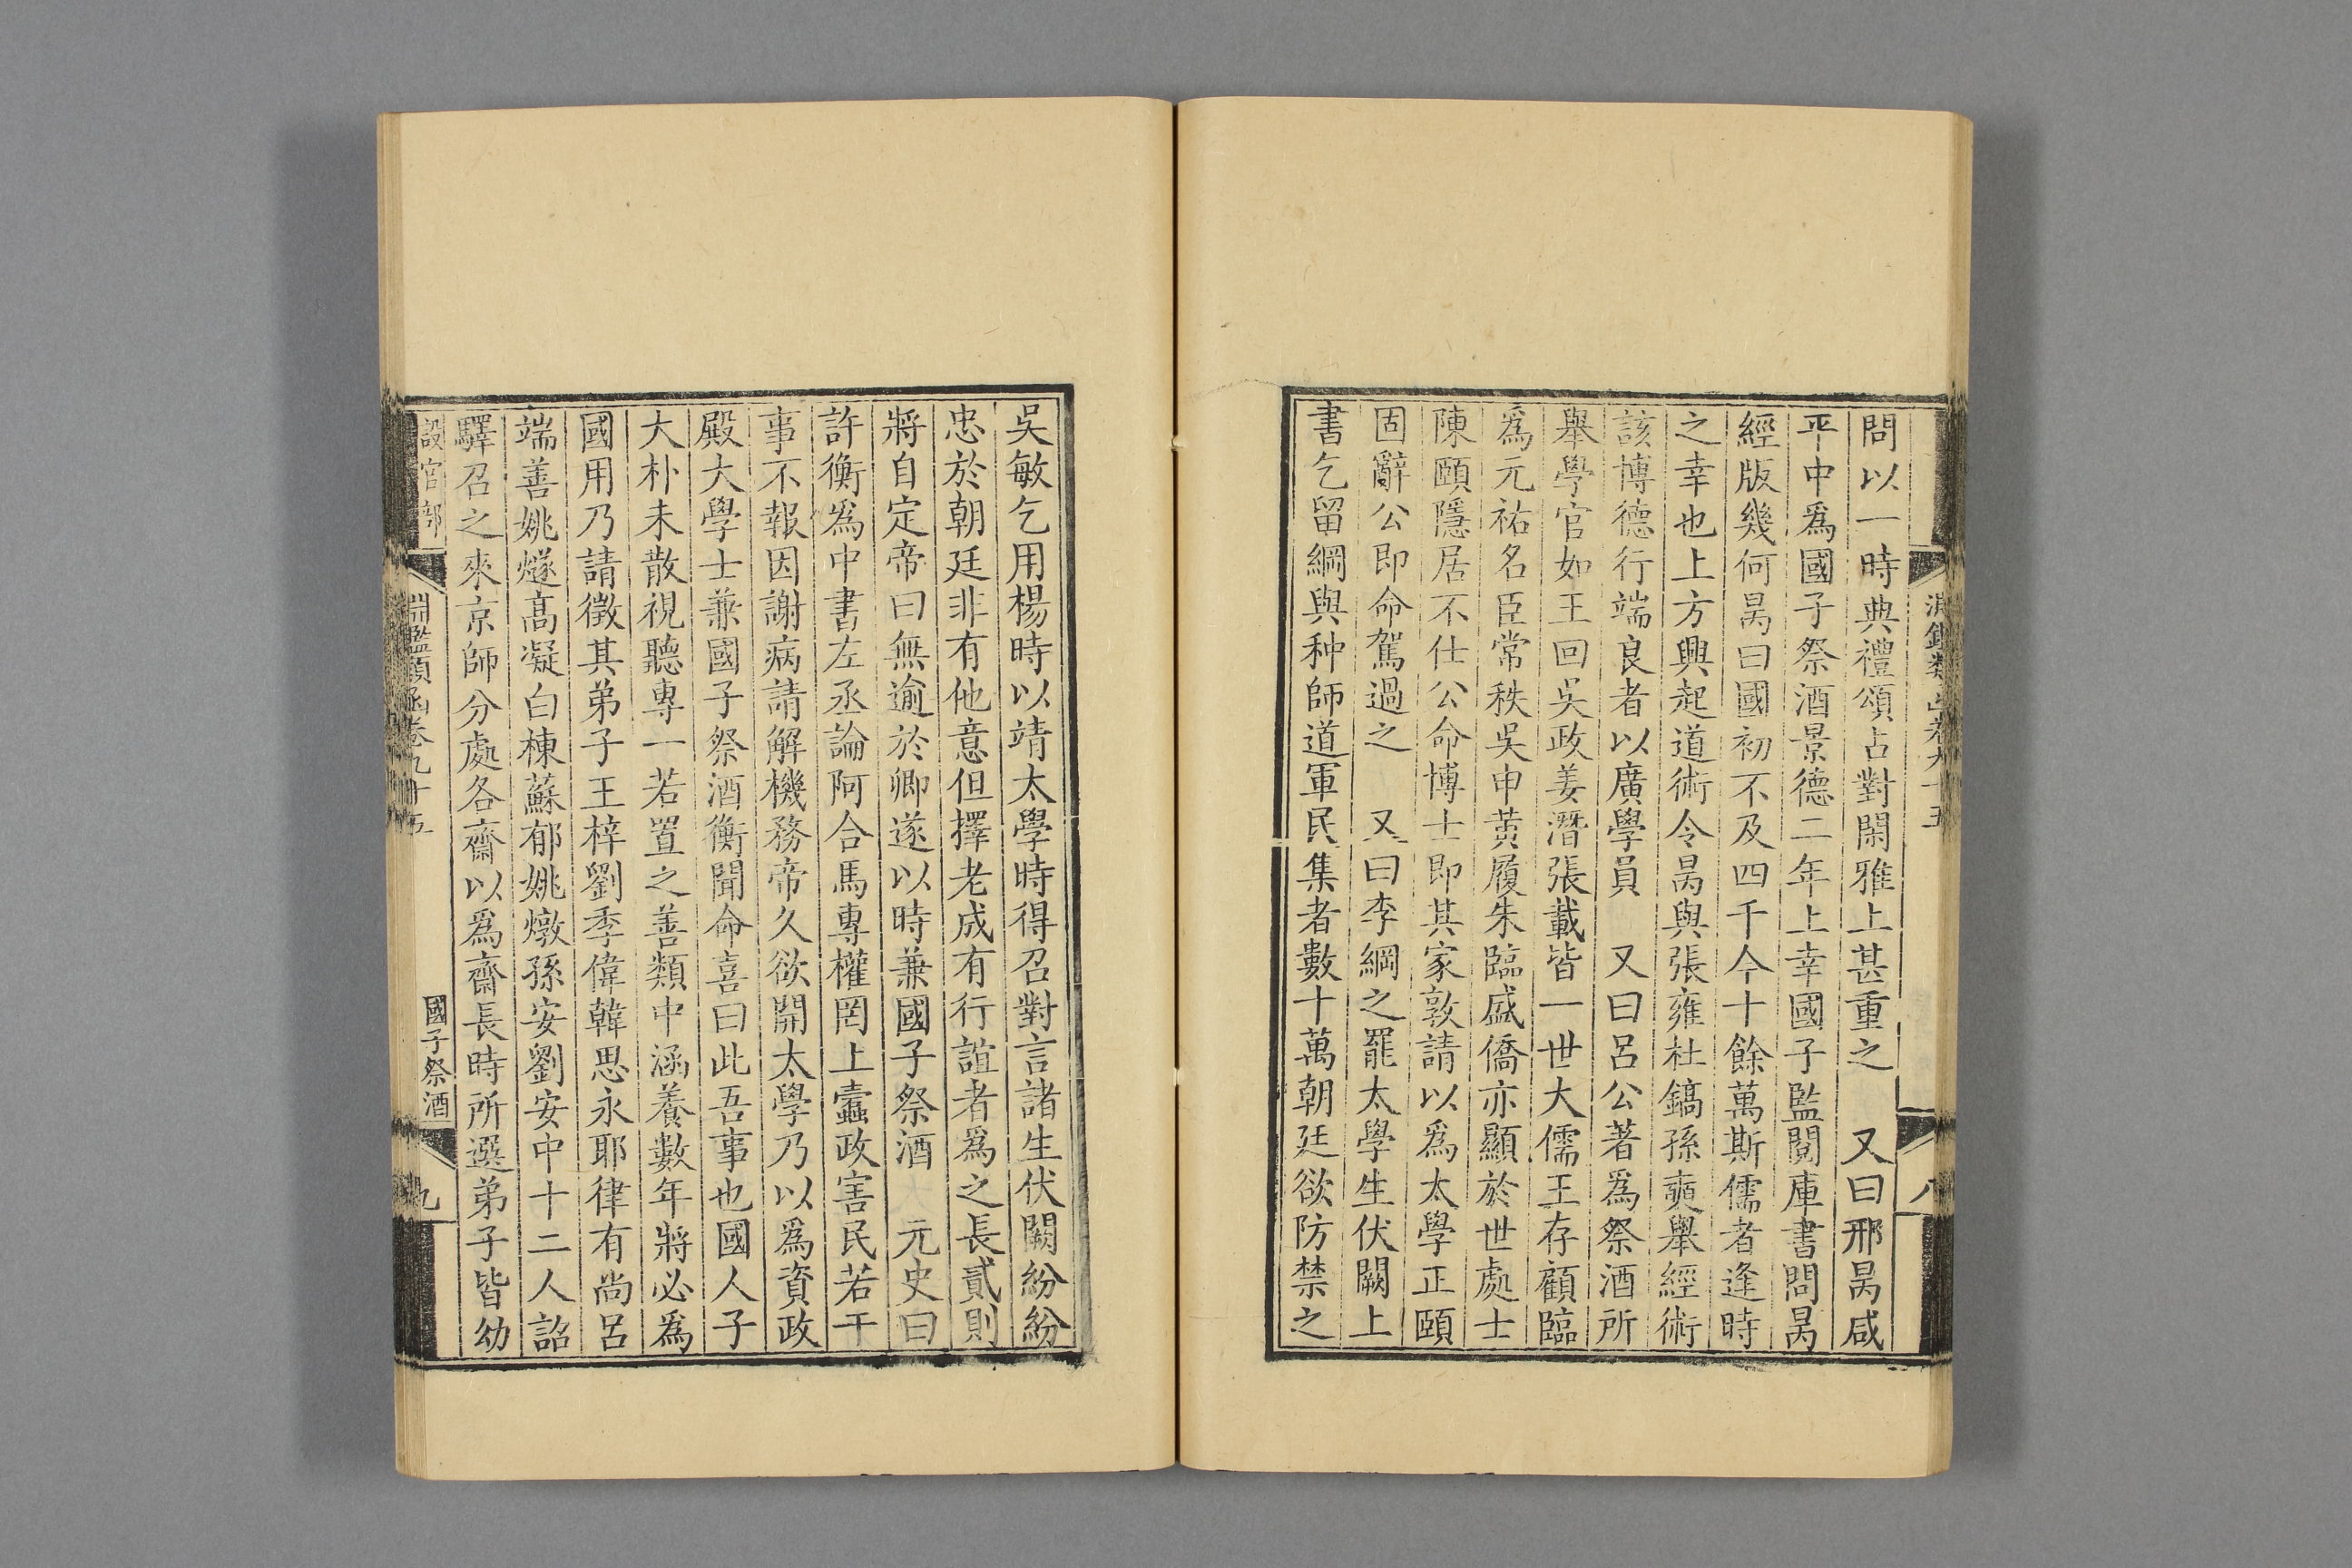 問以一時典禮頌占對閑雅上甚重之 又曰邢昺咸
平中爲國子祭酒景德二年上幸國子監閱庫書問昺
經版幾何昺曰國初不及四千今十餘萬斯儒者逢時
之幸也上方興起道術令昺與張雍杜鎬孫奭舉經術
該博德行端良者以廣學員 又曰呂公著爲祭酒所
舉學官如王回吳政姜潛張載皆一世大儒王存顧臨
爲元祐名臣常秩吳申黃履朱臨盛僑亦顯於世處士
陳頤隱居不仕公命博士即其家敦請以爲太學正頤
固辭公即命駕過之 又曰李綱之罷太學生伏闕上
書乞留綱與种師道軍民集者數十萬朝廷欲防禁之
吳敏乞用楊時以靖太學時得召對言諸生伏闕紛紛
忠於朝廷非有他意但擇老成有行誼者爲之長貳則
將自定帝曰無逾於卿遂以時兼國子祭酒 元史曰
許衡爲中書左丞論阿合馬專權罔上蠹政害民若干
事不報因謝病請解機務帝久欲開太學乃以爲資政
殿大學士兼國子祭酒衡聞命喜曰此吾事也國人子
大朴未散視聽專一若置之善類中涵養數年將必爲
國用乃請徵其弟子王梓劉季偉韓思永耶律有尚呂
端善姚燧高凝白棟蘇郁姚燉孫安劉安中十二人詔
驛召之來京師分處各齋以爲齋長時所選弟子皆幼
設官部 淵鑑類函卷九十五 國子祭酒 九